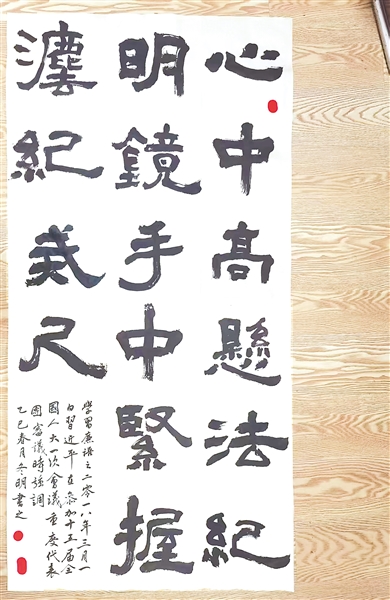 心中高懸法紀
明鏡手中緊握
灋紀戒尺
學習廉語之二零一八年三月一
日習近平在參加十三届全
國人大一次會議重慶代表
團審議時强調
乙巳春月冬明書之